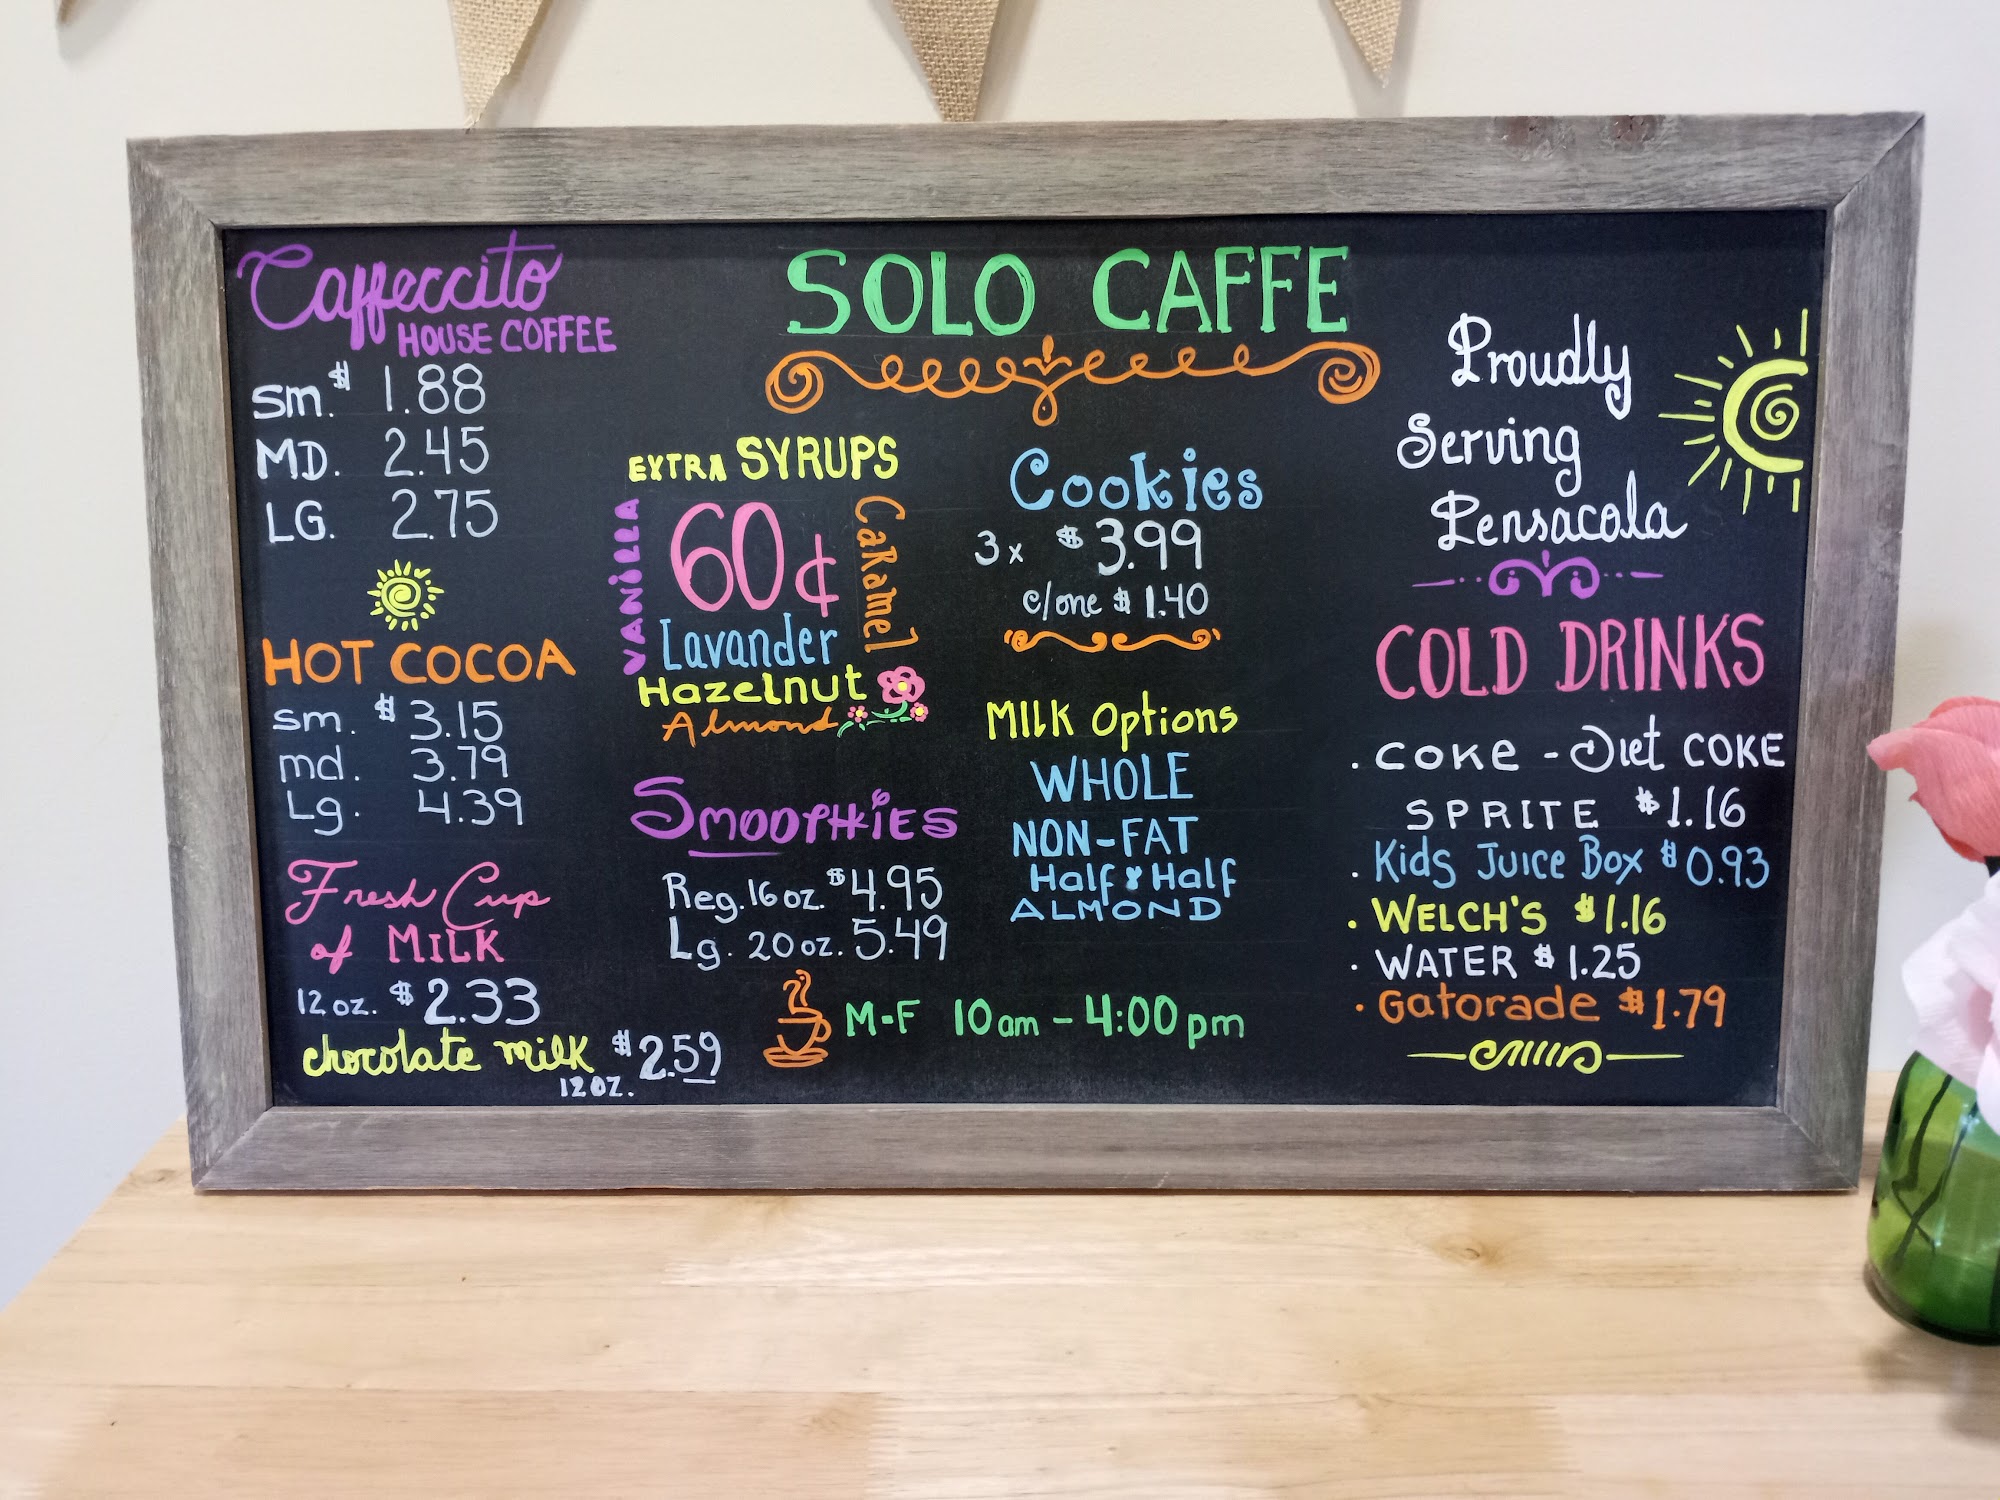 SOLO CAFFE
Caffeccito
HOUSE COFFEE
Sm. $ 1.88
MD. 2.45
LG. 2.75
HOT COCOA
Sm. $ 3.15
md. 3.79
Lg. 4.39
Fresh Cup
of MILK
12 oz. $ 2.33
chocolate milk $ 2.59
12 OZ.
EXTRA SYRUPS
60¢
VANiLLA
CaRamel
Lavander
Hazelnut
Almond
SMOOTHiES
Reg. 16 oz. $ 4.95
Lg. 20 oz. 5.49
Cookies
3 x $ 3.99
c/one $ 1.40
MIlk Options
WHOLE
NON-FAT
Half & Half
ALMOND
M-F 10 am - 4:00 pm
Proudly
Serving
Pensacola
COLD DRINKS
. COKE - Diet COKE
SPRITE $ 1.16
. Kids Juice Box $ 0.93
. WELCH'S $ 1.16
. WATER $ 1.25
. Gatorade $ 1.79